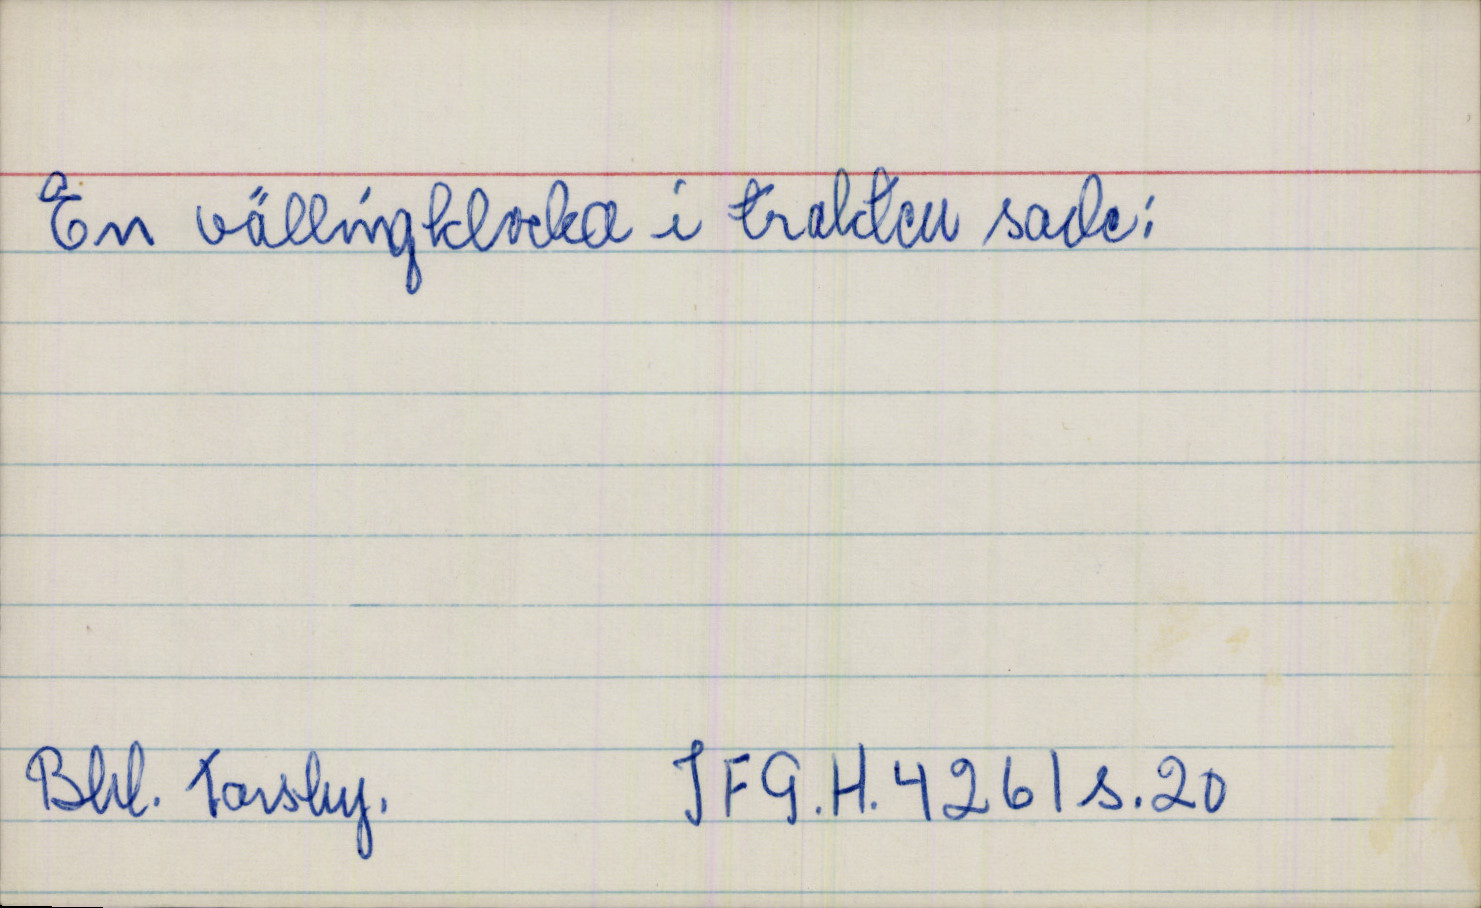 En vällingklocka i trakten sade:
Bhl. Torsby. IFG.H.4261 s.20